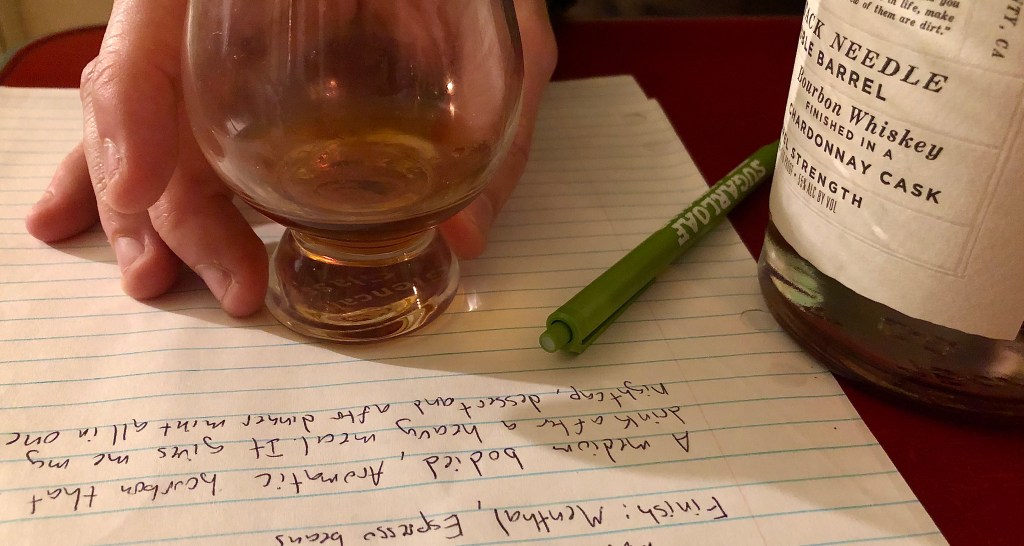 you
in life, make
of them are dirt."
TY, CA
CK NEEDLE
LE BARREL
Bourbon Whiskey
FINISHED IN A
CHARDONNAY CASK
EL STRENGTH
ALC BY VOL
SUGARLOAF
Finish: Menthal, Espresso beans
A medium bodied, Aromatic bourbon that
drink after a heavy meal. It gives me my
nightcap, dessert and after dinner mint all in one